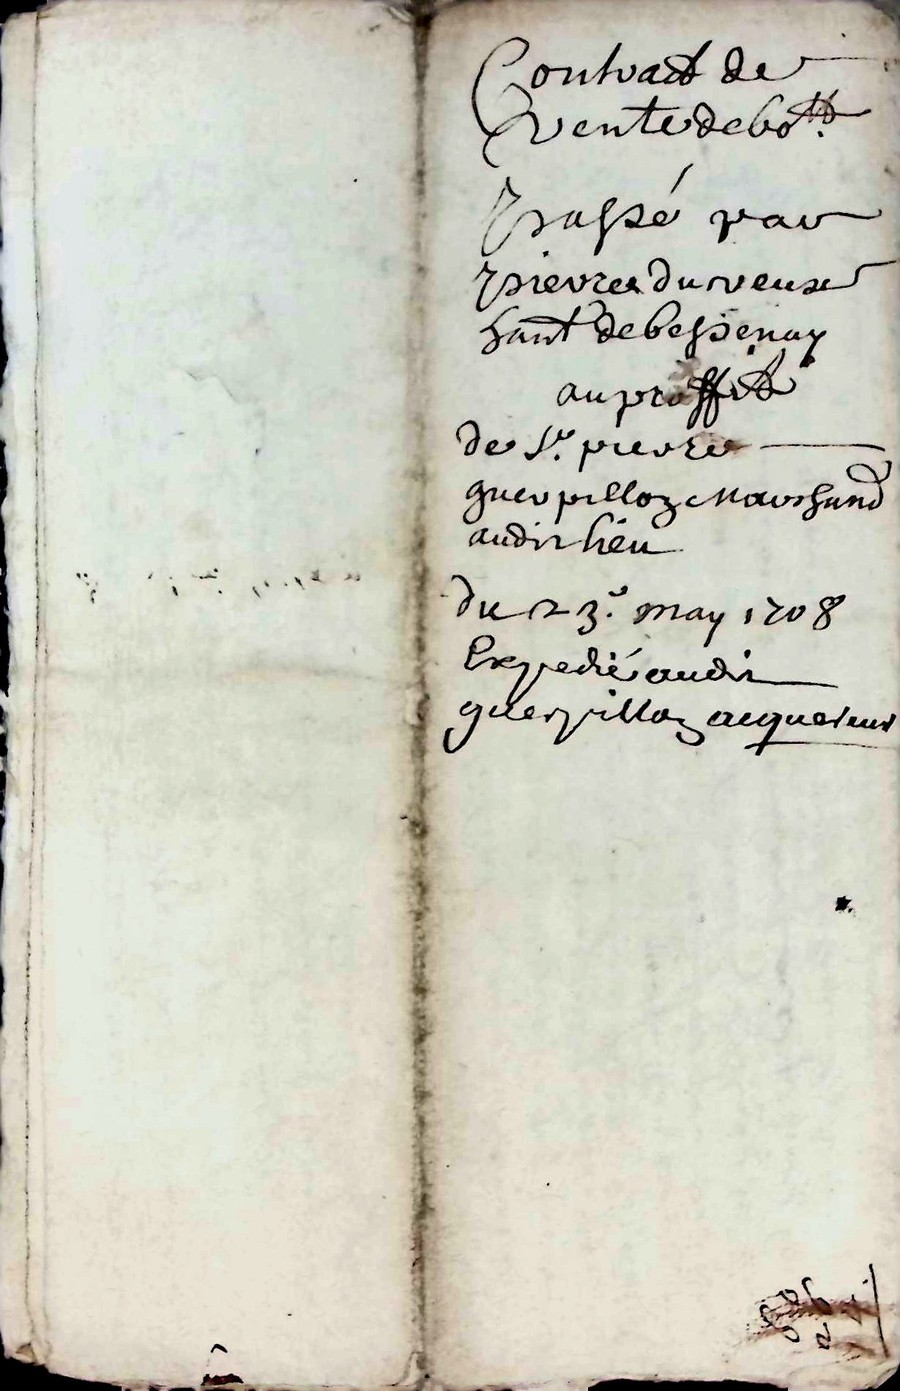 Contract de
vente de
passé par
pierre du
hant de bessenay
au proffit
de Sr. pierre
guerpilloz Marchand
audit lieu
du 23e. may 1708
Expedié audit
guerpilloz acquereur